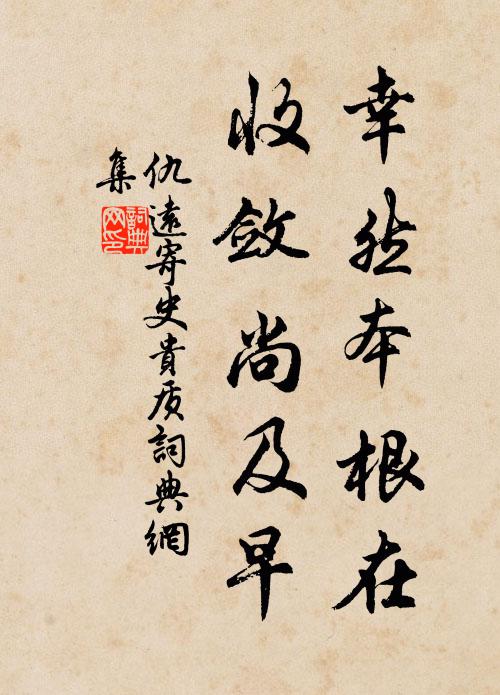 幸然本根在
收斂尚及早
仇遠寄史貴质詞典網
集
詞典
网印